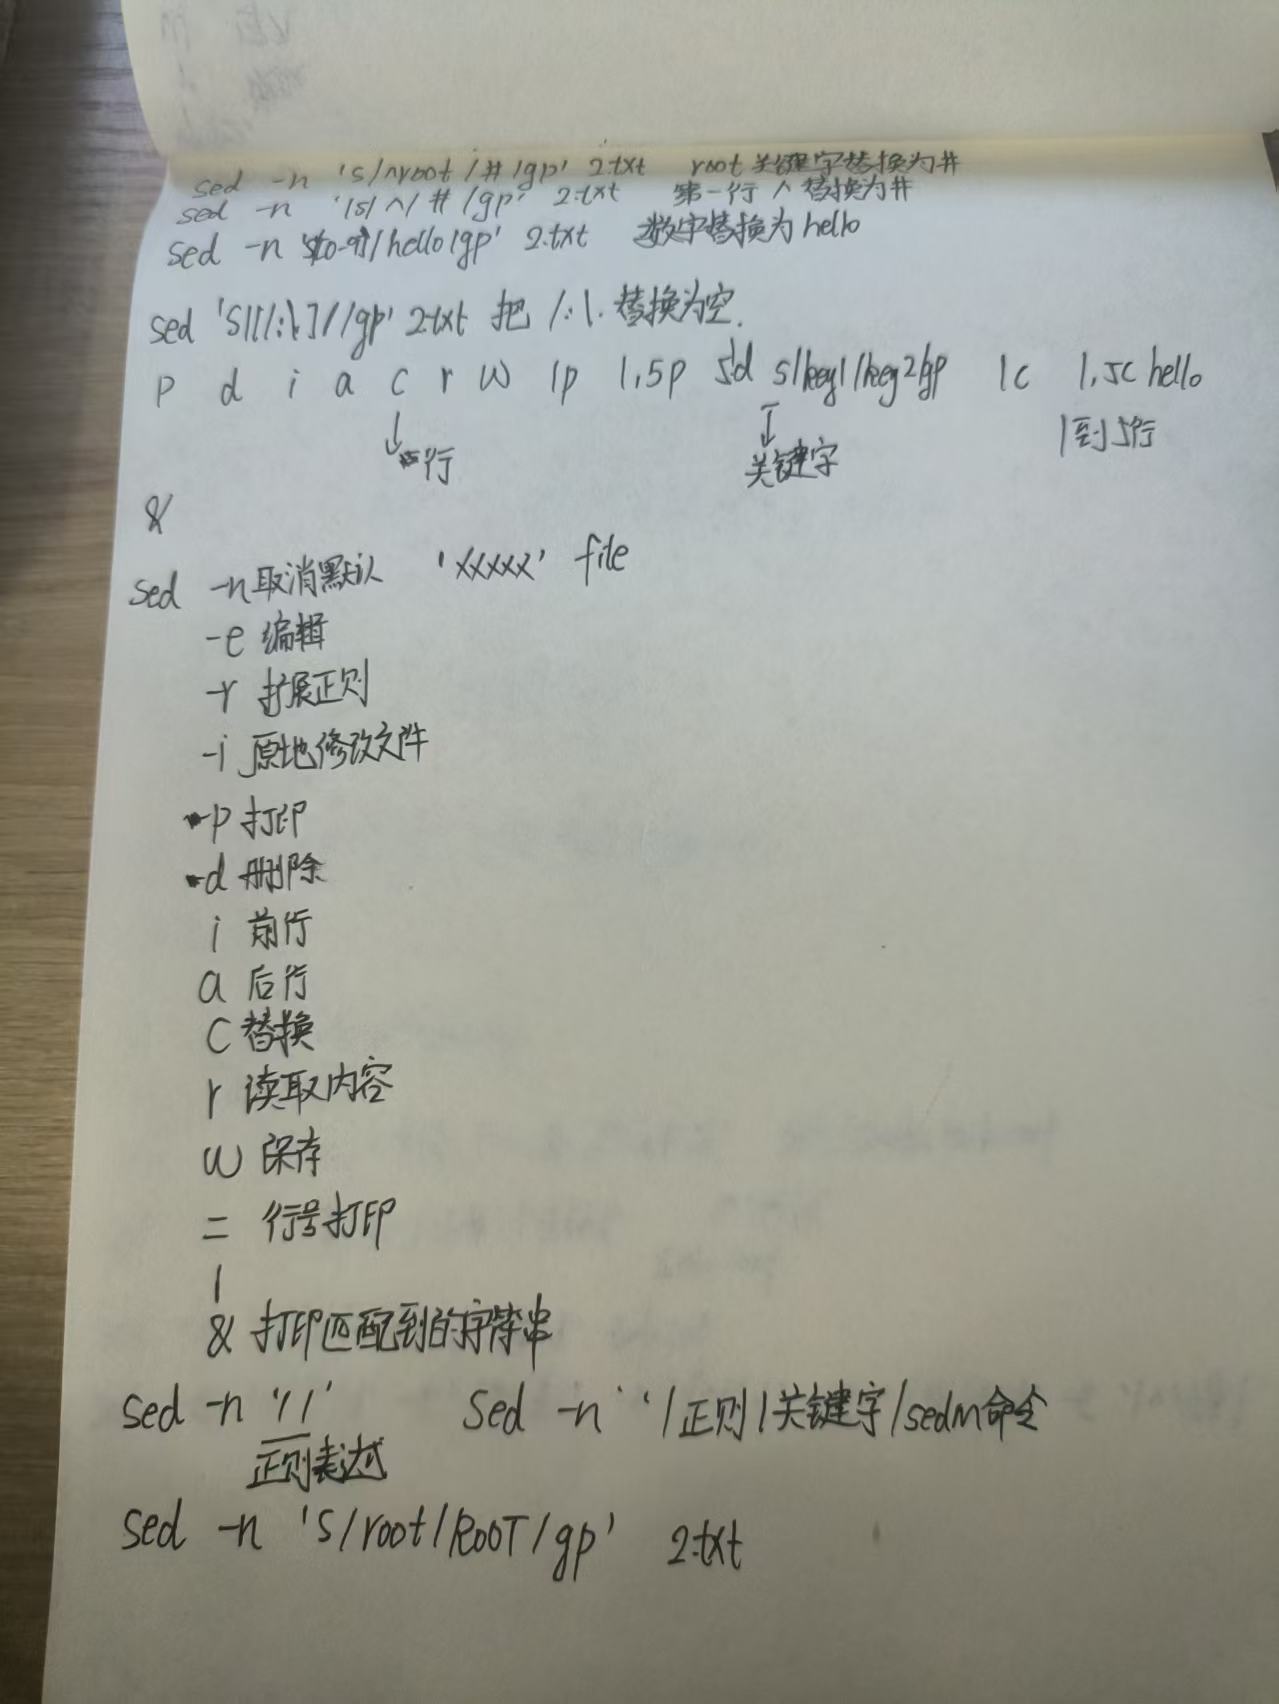 sed -n 's/^root/#/gp' 2.txt root 关键字替换为#
sed -n '/s/^/#/gp' 2.txt 第一行 ^ 替换为#
sed -n 's/[0-9]/hello/gp' 2.txt 数字替换为hello
sed 's/[/:\.]//gp' 2.txt 把 /:\. 替换为空.
p d i a c r w 1p 1,5p 5d s/key1/key2/gp 1c 1,5c hello
↓ 一行 ↓ 关键字 1到5行
&
sed -n取消默认 'xxxxx' file
-e 编辑
-r 扩展正则
-i 原地修改文件
p 打印
d 删除
i 前行
a 后行
c 替换
r 读取内容
w 保存
= 行号打印
!
& 打印匹配到的字符串
sed -n '//' sed -n '/正则/关键字/sedm命令
正则表达式
sed -n 's/root/ROOT/gp' 2.txt